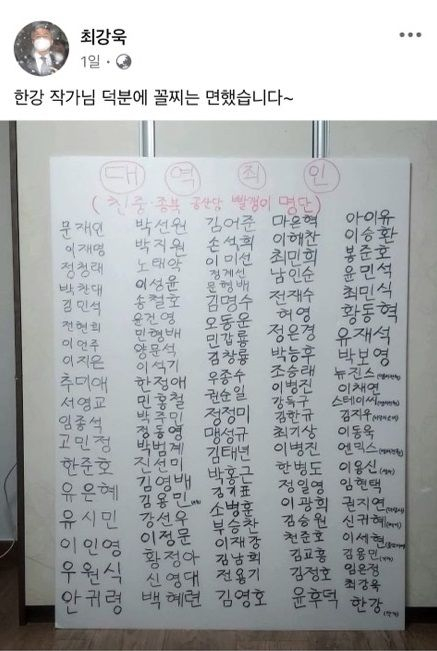 최강욱
1일
한강 작가님 덕분에 꼴찌는 면했습니다~
대 역 죄 인
( 친중·종북 공산당 빨갱이 명단 )
문재인 박선원 김어준 마은혁 아이유
이재명 박지원 손석희 이해찬 이승환
정청래 노태악 이미선 최민희 봉준호
박찬대 이성윤 정계선 남인순 윤민석
김민석 송철호 문형배 전재수 최민식
전현희 윤건영 김명수 허영 황동혁
이언주 민형배 오동운 정은경 유재석
이지은 양문석 민갑룡 박능후 박보영
추미애 이석기 김창룡 조승래 뉴진스
서영교 한정애 우종수 이병진 이채연
임종석 민홍철 권순일 강득구 스테이씨
고민정 박주민 정정미 김한규 김지우
한준호 정동영 맹성규 최기상 이동욱
유은혜 박범계 김태년 이병진 엔믹스
유시민 진선미 박홍근 한병도 이용신
이인영 김영배 김기표 정일영 임현택
우원식 김용민 소병훈 이광희 권지연
안귀령 강선우 부승찬 김승원 신규혜
이정문 이재강 천준호 이세현
황정아 김남희 김교흥 김용민
신영대 전용기 김정호 임은정
백혜련 김영호 윤후덕 최강욱
한강